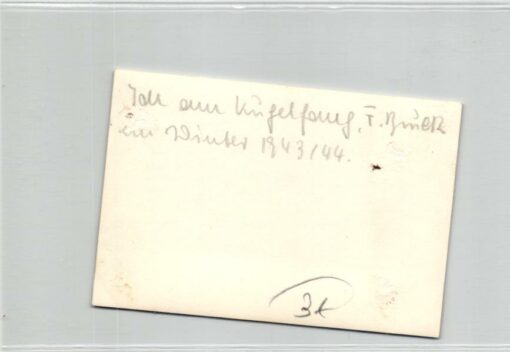 Ich am Kugelfang, F. Bruck
im Winter 1943/44.
3t